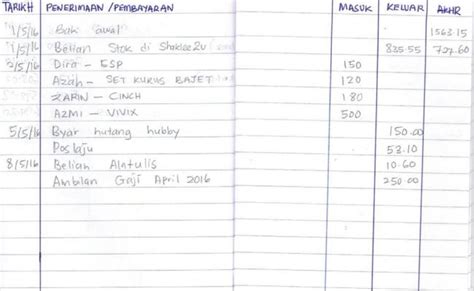 TARIKH PENERIMAAN / PEMBAYARAN MASUK KELUAR AKHIR
1/5/16 Baki awal 1563.15
1/5/16 Belian Stok di Shaklee2u 835.55 727.60
3/5/16 Dira - ESP 150
Azah - SET KURUS BAJET 120
ZARIN - CINCH 180
AZMI - VIVIX 500
5/5/16 Byar hutang hubby 150.00
Poslaju 53.10
8/5/16 Belian Alatulis 10.60
Ambilan Gaji April 2016 250.00